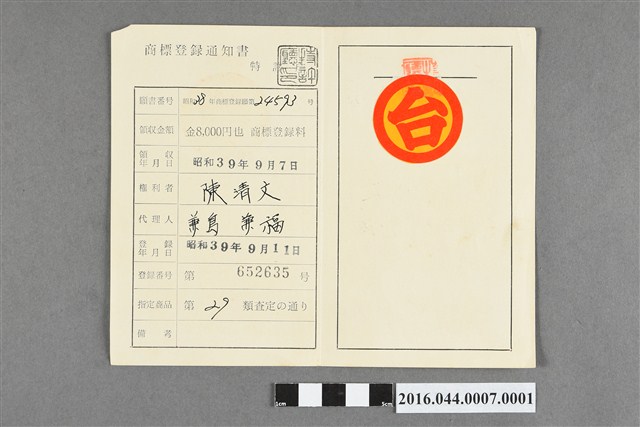 商標登録通知書
特許庁
願書番号 昭和28年商標登録願第24593号
領収金額 金8,000円也 商標登録料
領収年月日 昭和39年9月7日
権利者 陳清文
代理人 兼島 兼福
登録年月日 昭和39年9月11日
登録番号 第 652635 号
指定商品 第 29 類査定の通り
備考
台
1cm 5cm
2016.044.0007.0001